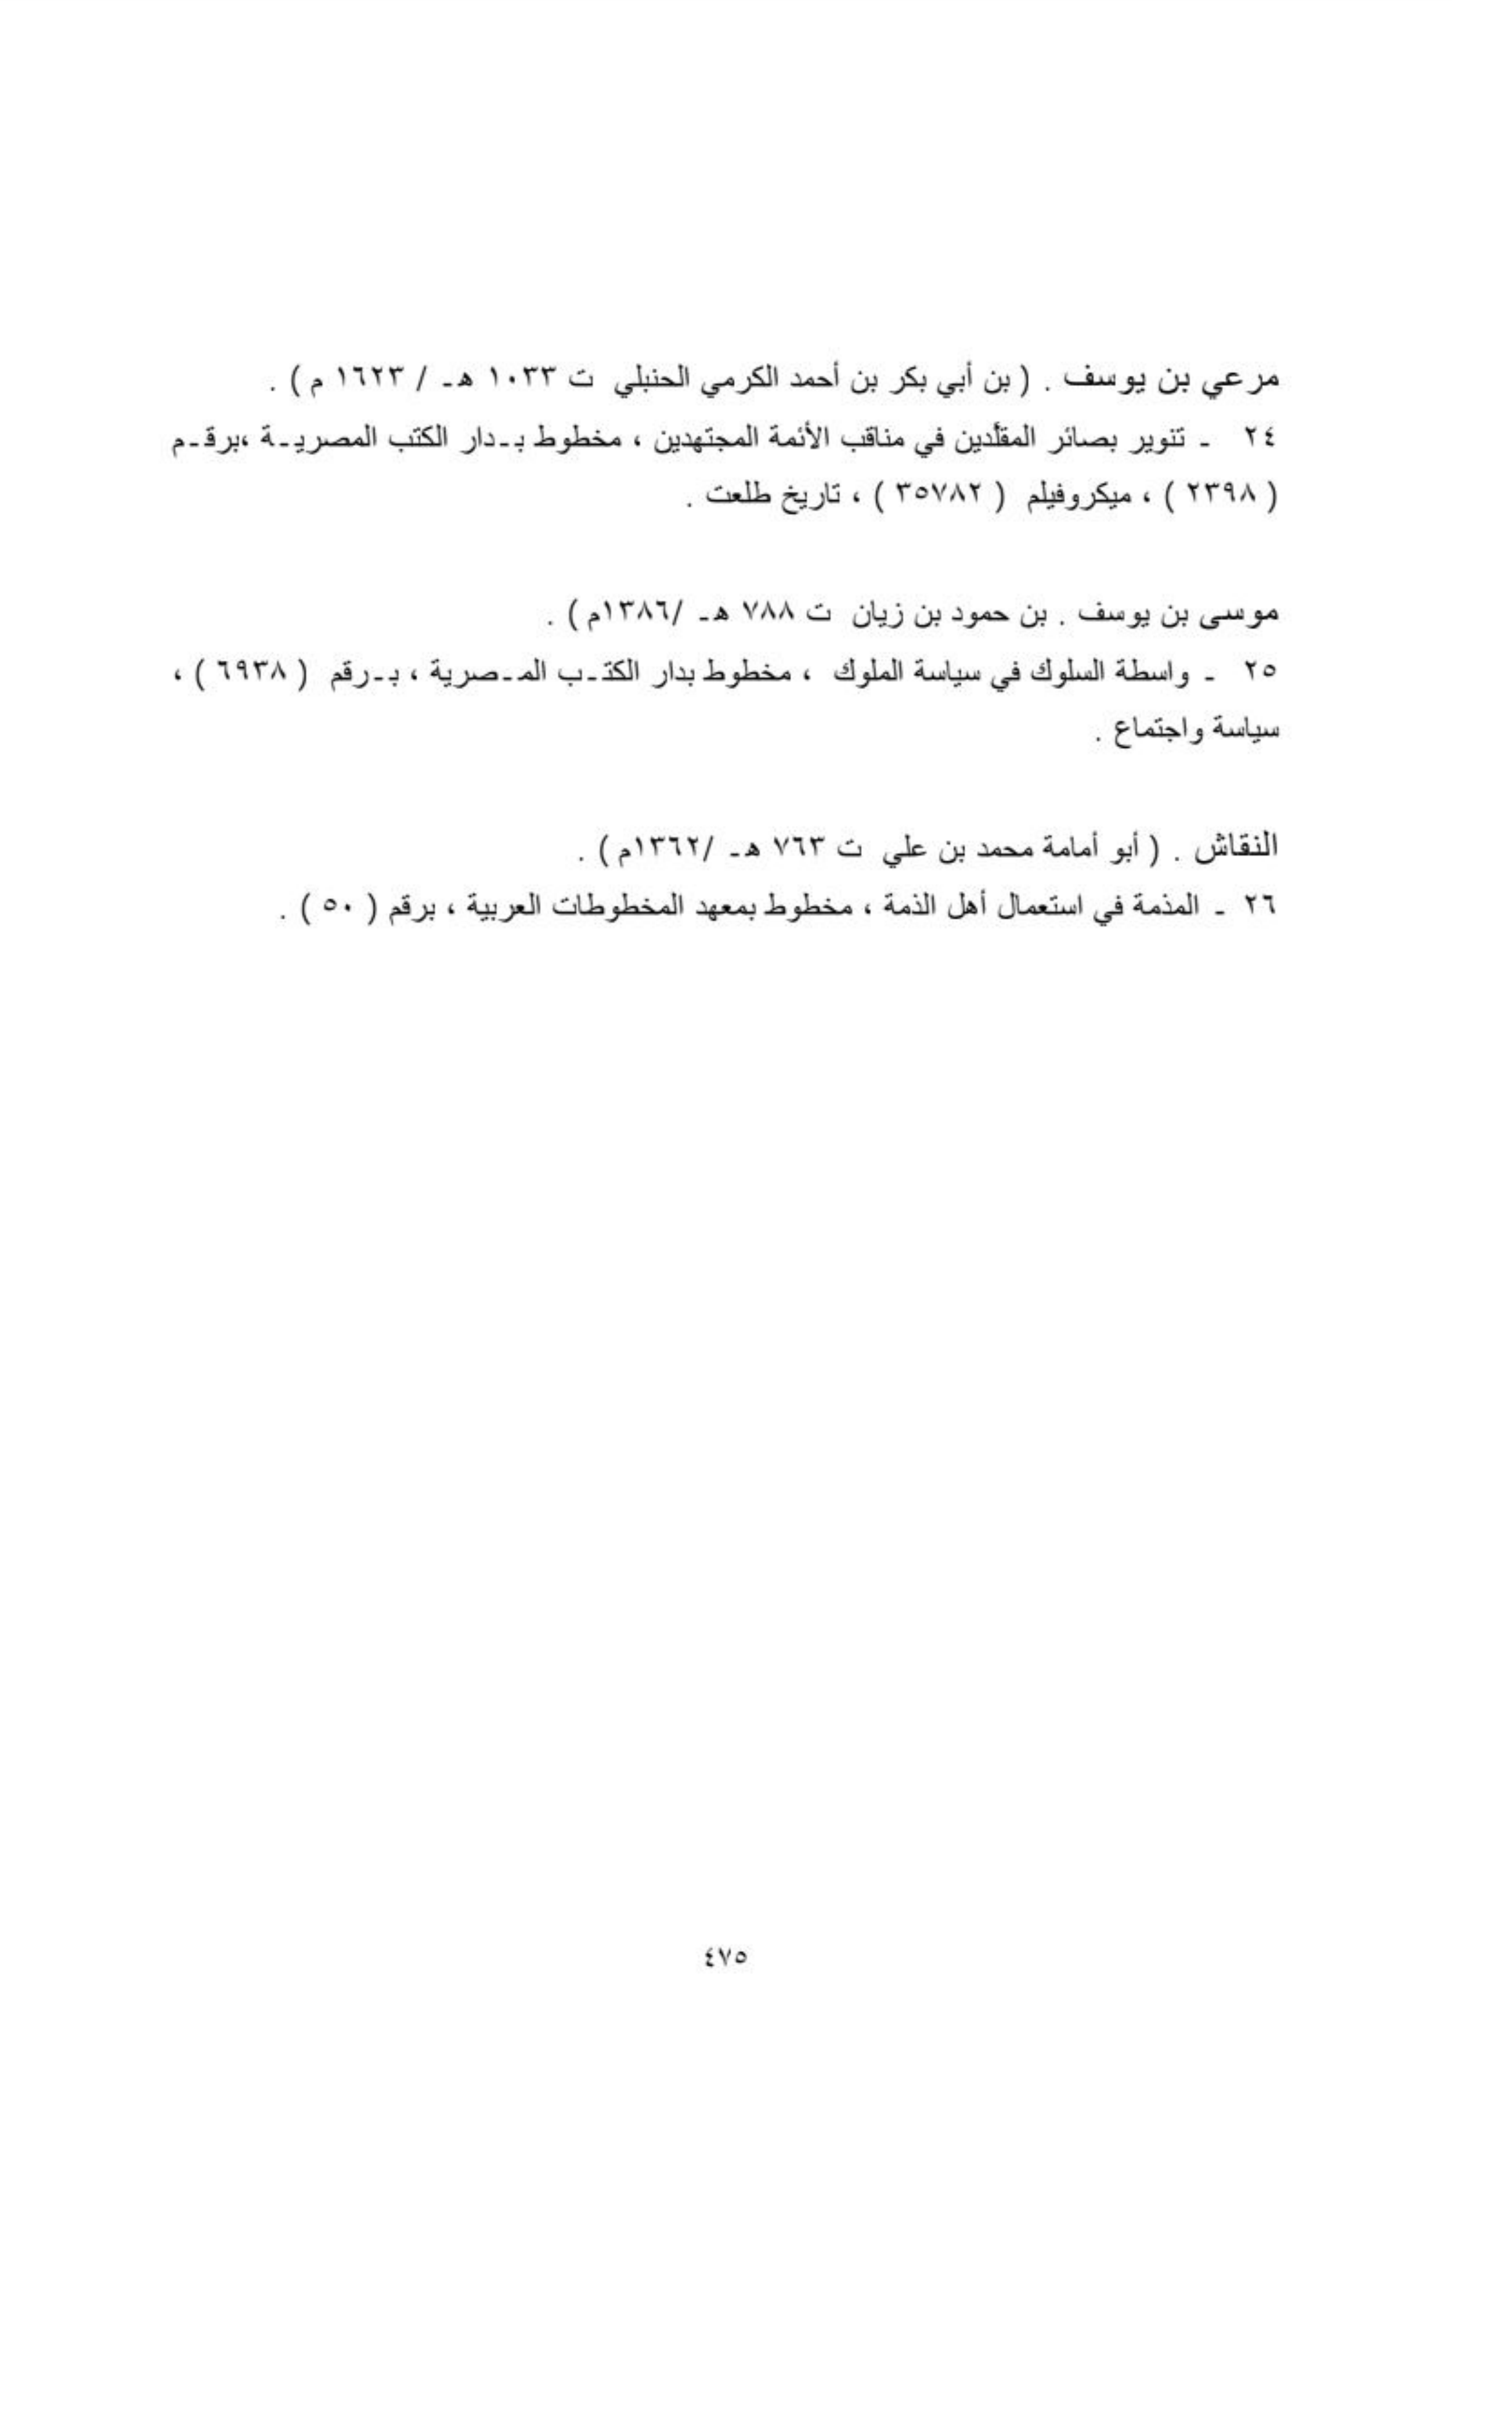 مرعي بن يوسف . ( بن أبي بكر بن أحمد الكرمي الحنبلي ت ١٠٣٣ هـ / ١٦٢٣ م ) .
٢٤ ـ تنوير بصائر المقلّدين في مناقب الأئمة المجتهدين ، مخطوط بـدار الكتب المصريـة ،برقـم
( ٢٣٩٨ ) ، ميكروفيلم ( ٣٥٧٨٢ ) ، تاريخ طلعت .
موسى بن يوسف . بن حمود بن زيان ت ٧٨٨ هـ /١٣٨٦م ) .
٢٥ ـ واسطة السلوك في سياسة الملوك ، مخطوط بدار الكتـب المـصرية ، بـرقم ( ٦٩٣٨ ) ،
سياسة واجتماع .
النقاش . ( أبو أمامة محمد بن علي ت ٧٦٣ هـ /١٣٦٢م ) .
٢٦ ـ المذمة في استعمال أهل الذمة ، مخطوط بمعهد المخطوطات العربية ، برقم ( ٥٠ ) .
٤٧٥